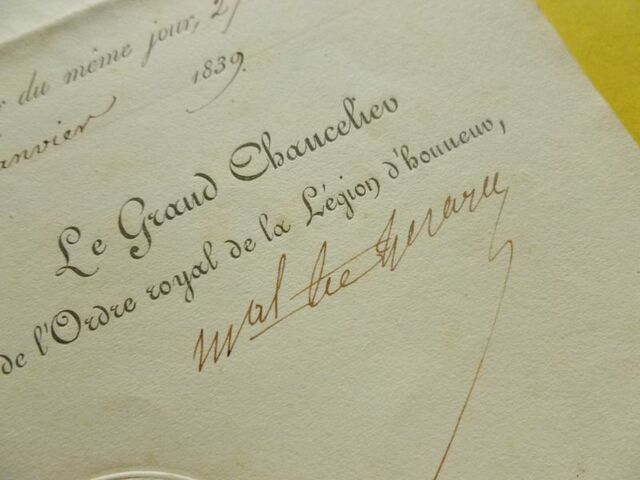 du même jour, 2
anvier 1839.
Le Grand Chancelier
de l'Ordre royal de la Légion d'honneur,
Mal Cte Gérard